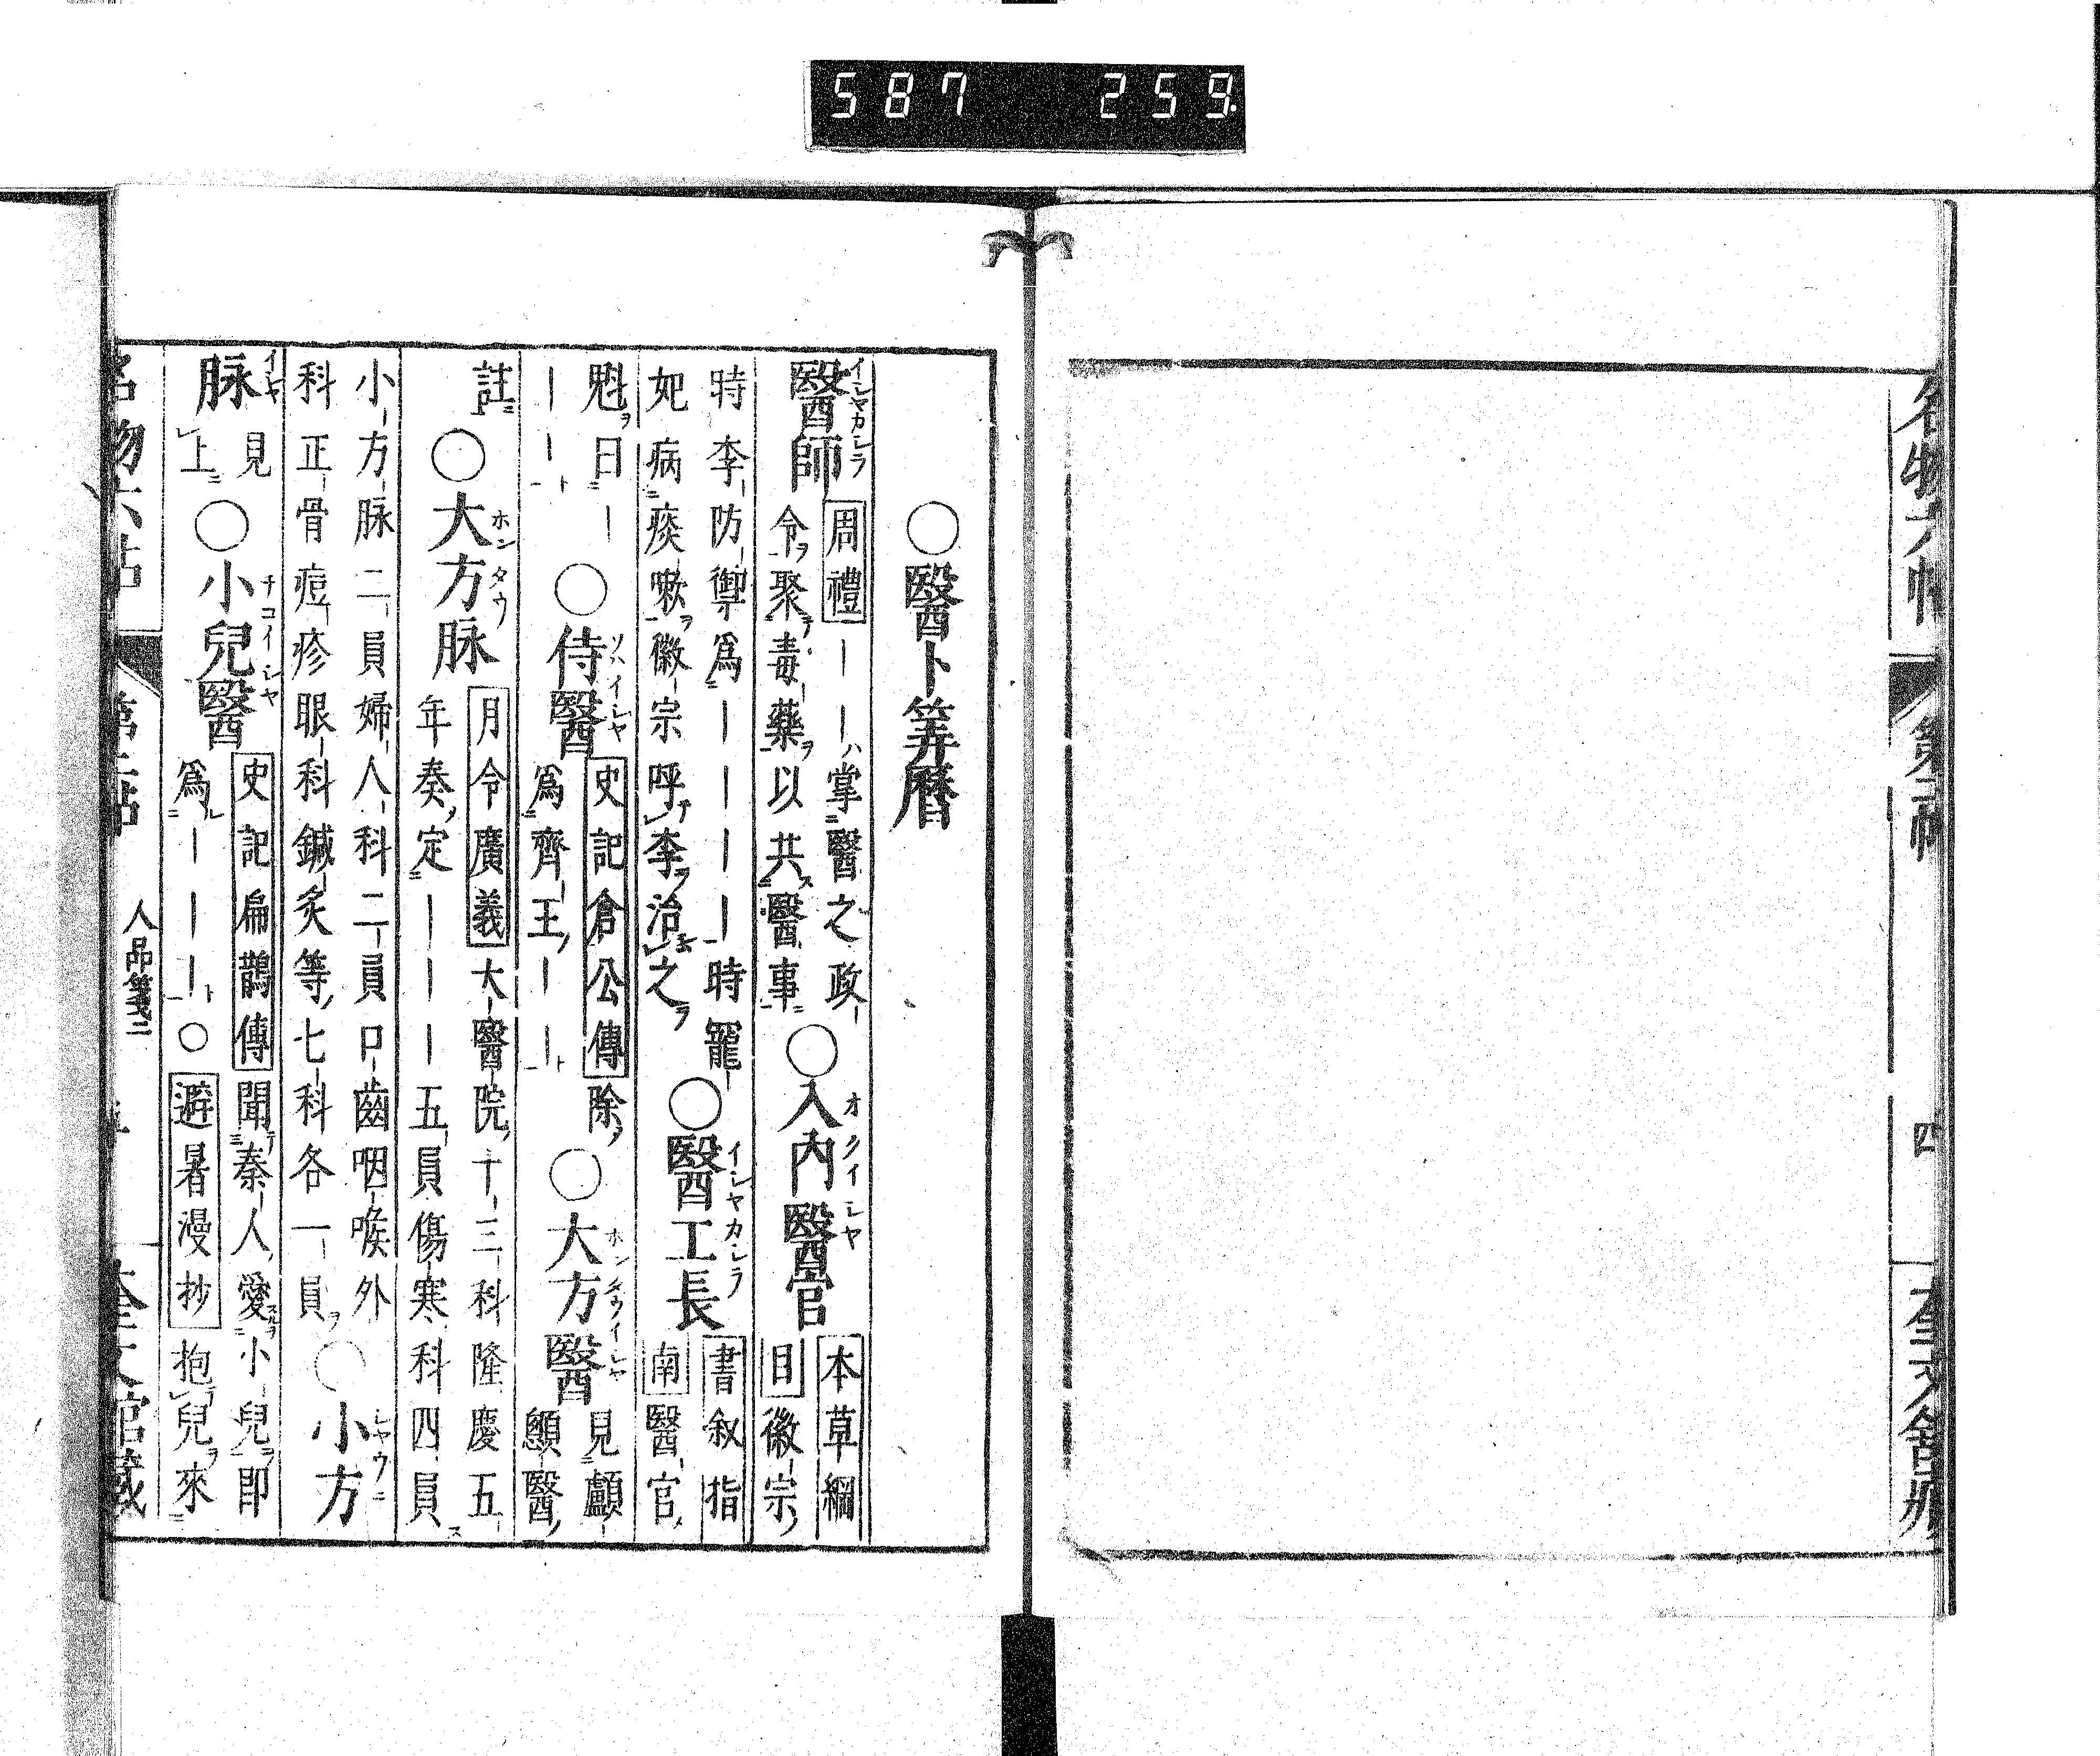 587 259
名物六帖 第二帖 四
○醫卜筭曆
醫師 周禮 ——ハ掌醫之政
令聚毒藥以共醫事 ○入內醫官 本草綱
目 徽宗
時李防禦爲————時寵
妃病痰嗽徽宗呼李治之 ○醫工長 書叙指
南 醫官
魁曰—
—— ○侍醫 史記倉公傳 除
爲齊王—— ○大方醫 見顱
顖醫
註 ○大方脉 月令廣義 大醫院十三科隆慶五
年奏定———五員傷寒科四員
小方脉二員婦人科二員口齒咽喉外
科正骨痘疹眼科鍼灸等七科各一員 ○小方
脉 見
上 ○小兒醫 史記扁鵲傳 聞秦人愛小兒即
爲——— ○避暑漫抄 抱兒來
人品箋二